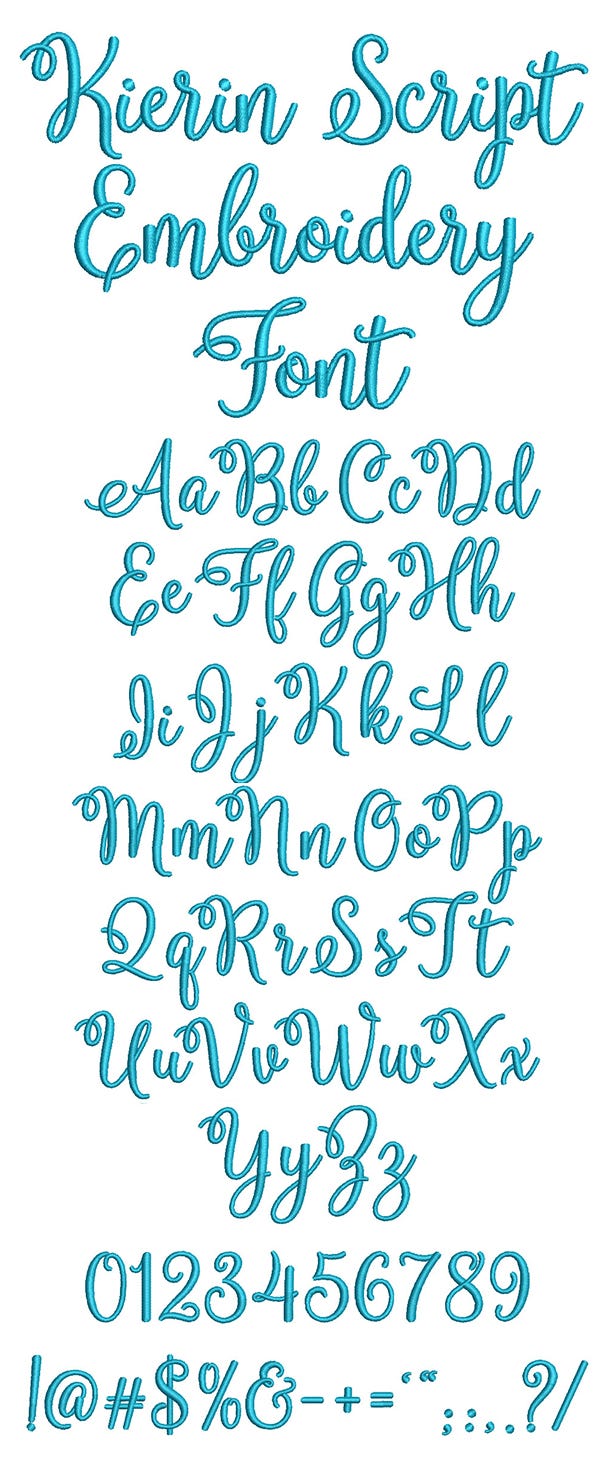 Kierin Script
Embroidery
Font
AaBbCcDd
EeFfGgHh
IiJjKkLl
MmNnOoPp
QqRrSsTt
UuVvWwXx
YyZz
0123456789
!@#$%&-+=‘“;:,.?/